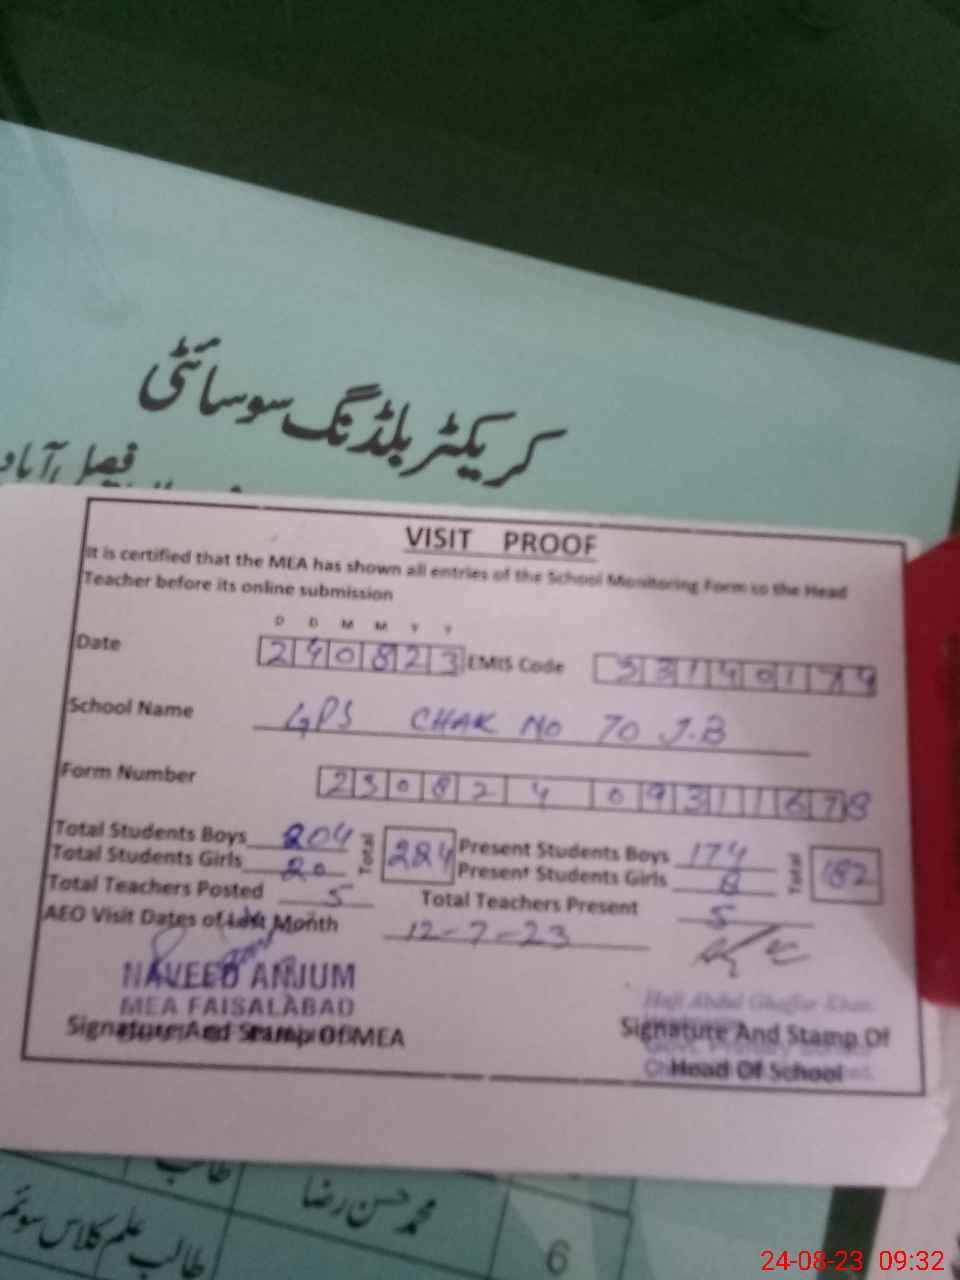 کریکٹر بلڈنگ سوسائٹی
فیصل آباد
VISIT PROOF
It is certified that the MEA has shown all entries of the School Monitoring Form so the Head
Teacher before its online submission
D D M M Y Y
Date 240823 EMIS Code 33140179
School Name GPS CHAK NO 70 J.B
Form Number 230824 09311678
Total Students Boys 204 Total 224 Present Students Boys 174 Total 182
Total Students Girls 20 Present Students Girls 8
Total Teachers Posted 5 Total Teachers Present 5
AEO Visit Dates of Last Month 12-7-23
NAVEED ANJUM
MEA FAISALABAD
Signature And Stamp Of MEA
Haji Abdul Ghaffar Khan
Signature And Stamp Of
Head Of School
طالب
محمد حسن رضا
طالب علم کلاس سوئم
6
24-08-23 09:32